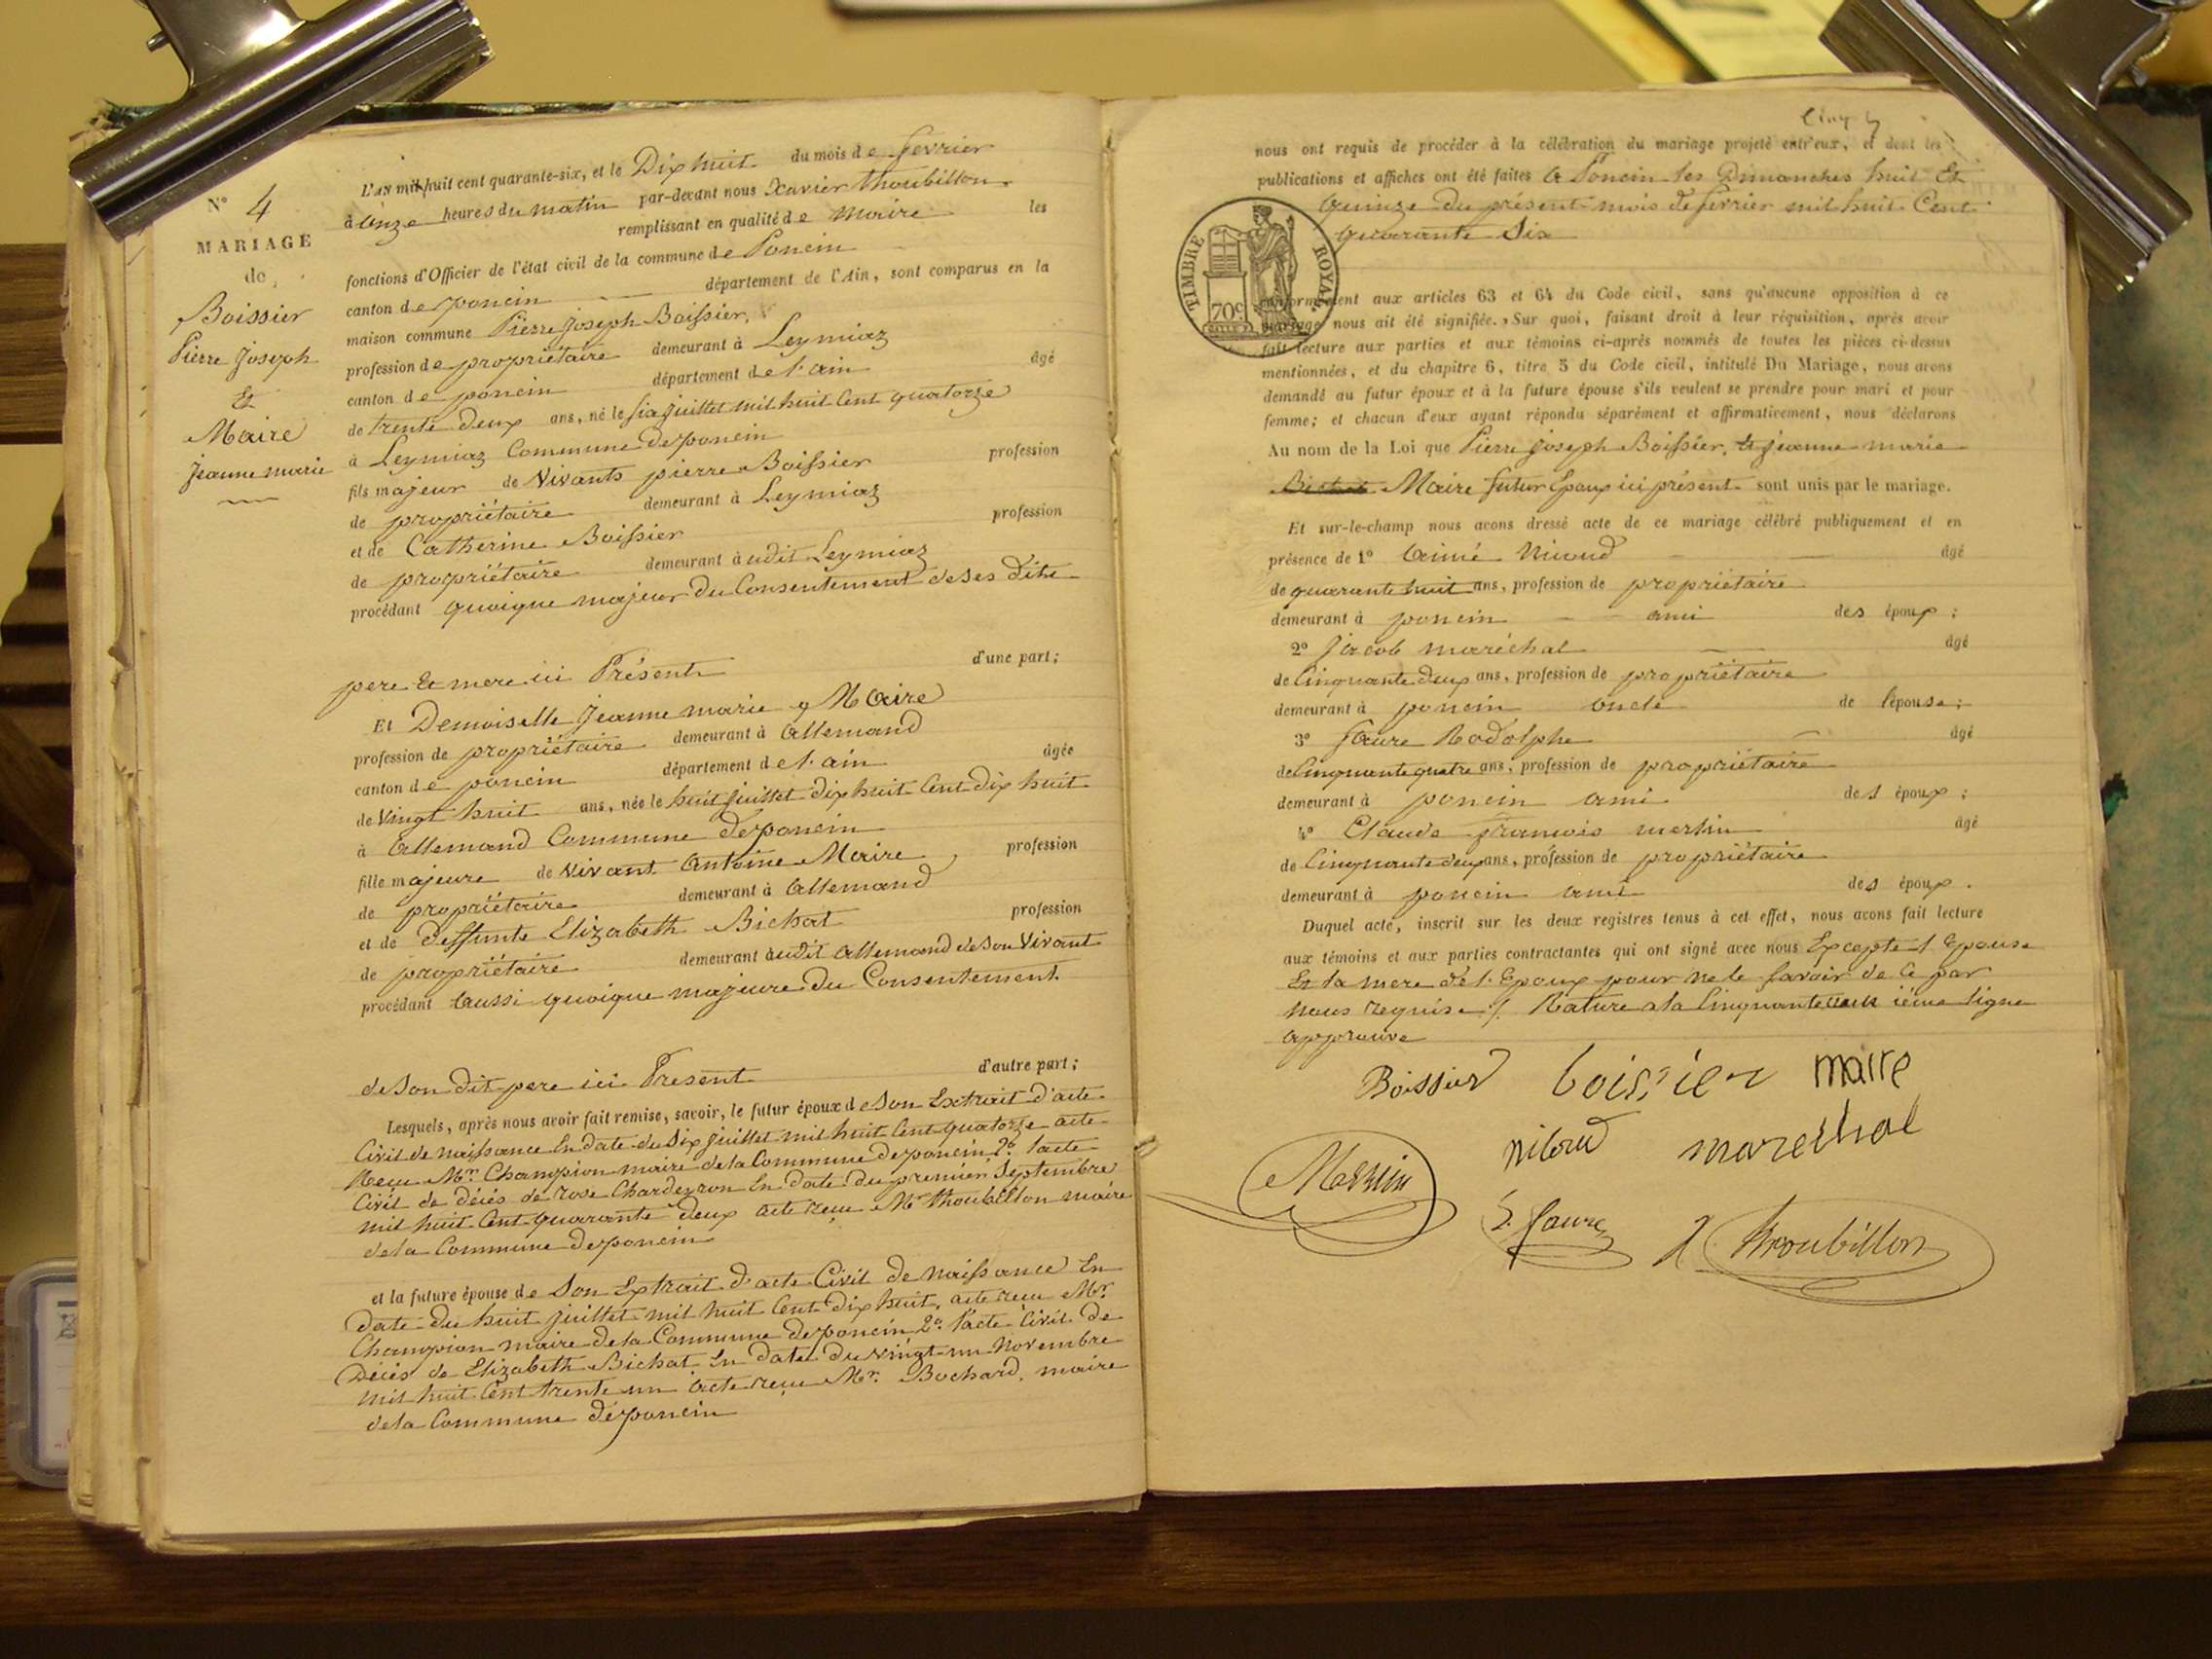 N° 4
MARIAGE
de
Boissier
Pierre Joseph
Et
Maire
Jeanne marie
L'AN mil huit cent quarante-six, et le Dix huit du mois de fevrier
à Onze heures du matin par-devant nous Xavier thoubillon
remplissant en qualité de maire les
fonctions d'Officier de l'état civil de la commune de Poncin
canton de poncin département de l'Ain, sont comparus en la
maison commune Pierre Joseph Boissier,
profession de propriétaire demeurant à Leymiaz
canton de poncin département de l'ain âgé
de trente deux ans, né le six juillet mil huit Cent quatorze
à Leymiaz Commune de poncin
fils majeur de Vivants pierre Boissier profession
de propriétaire demeurant à Leymiaz
et de Catherine Boissier profession
de propriétaire demeurant àudit Leymiaz
procédant quoique majeur du Consentement de ses dits
pere Et mere ici Présents d'une part;
Et Demoiselle Jeanne marie Maire
profession de propriétaire demeurant à Allemand
canton de poncin département de l'ain âgée
de Vingt huit ans, née le huit Juillet dix huit Cent dix huit
à Allemand Commune de poncin
fille majeure de Vivant Antoine Maire, profession
de propriétaire demeurant à Allemand
et de deffunte Elizabeth Bichat profession
de propriétaire demeurant àudit Allemand de Son Vivant
procédant Aussi quoique majeure du Consentement
de Son dit pere ici Présent d'autre part;
Lesquels, après nous avoir fait remise, savoir, le futur époux de Son Extrait d'acte
Civil de naissance En date du Six juillet mil huit Cent quatorze acte
Reçu Mr. Champion maire de la Commune de poncin 2° l'acte
Civil de décés de rose Chardeyron En date du premier Septembre
mil huit Cent quarante deux acte reçu Mr thoubillon maire
de la Commune de poncin
et la future épouse de Son Extrait d'acte Civil de naissance En
date du huit juillet mil huit Cent dix huit, acte reçu Mr.
Champion maire de la Commune de poncin 2° l'acte Civil de
Décés de Elizabeth Bichat En date du vingt un Novembre
mil huit Cent trente un acte reçu Mr. Bochard, maire
de la Commune de poncin
Cinq
nous ont requis de procéder à la célébration du mariage projeté entr'eux, et dont les
publications et affiches ont été faites A Poncin les Dimanches huit Et
Quinze du présent mois de fevrier mil huit Cent
Quarante Six
TIMBRE ROYAL
70c
conformément aux articles 63 et 64 du Code civil, sans qu'aucune opposition à ce
mariage nous ait été signifiée. Sur quoi, faisant droit à leur réquisition, après avoir
fait lecture aux parties et aux témoins ci-après nommés de toutes les pièces ci-dessus
mentionnées, et du chapitre 6, titre 5 du Code civil, intitulé Du Mariage, nous avons
demandé au futur époux et à la future épouse s'ils veulent se prendre pour mari et pour
femme; et chacun d'eux ayant répondu séparément et affirmativement, nous déclarons
Au nom de la Loi que Pierre Joseph Boissier, Et Jeanne marie
Maire futur Epoux ici présent sont unis par le mariage.
Et sur-le-champ nous avons dressé acte de ce mariage célébré publiquement et en
présence de 1° Aimé Nicoud âgé
de quarante huit ans, profession de propriétaire
demeurant à poncin ami des époux;
2° Jacob maréchal âgé
de Cinquante deux ans, profession de propriétaire
demeurant à poncin oncle de l'épouse;
3° faure Rodolphe âgé
de Cinquante quatre ans, profession de propriétaire
demeurant à poncin ami des époux;
4° Claude françois merlin âgé
de Cinquante deux ans, profession de propriétaire
demeurant à poncin ami des époux.
Duquel acte, inscrit sur les deux registres tenus à cet effet, nous avons fait lecture
aux témoins et aux parties contractantes qui ont signé avec nous Excepté l'Epouse
Et la mere de l'Epoux pour ne le savoir de Ce par
nous requise /. Rature a la Cinquante ième ligne
approuvé
Boissier boissier maire
nicoud marechal
Merlin
faure
X Thoubillon